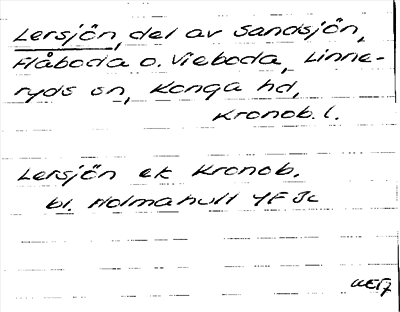 Lersjön, del av Sandsjön,
Flåboda o. Vieboda, Linne-
ryds sn, Konga hd,
Kronob. l.
Lersjön ek Kronob.
bl. Holmahult 4F 3c